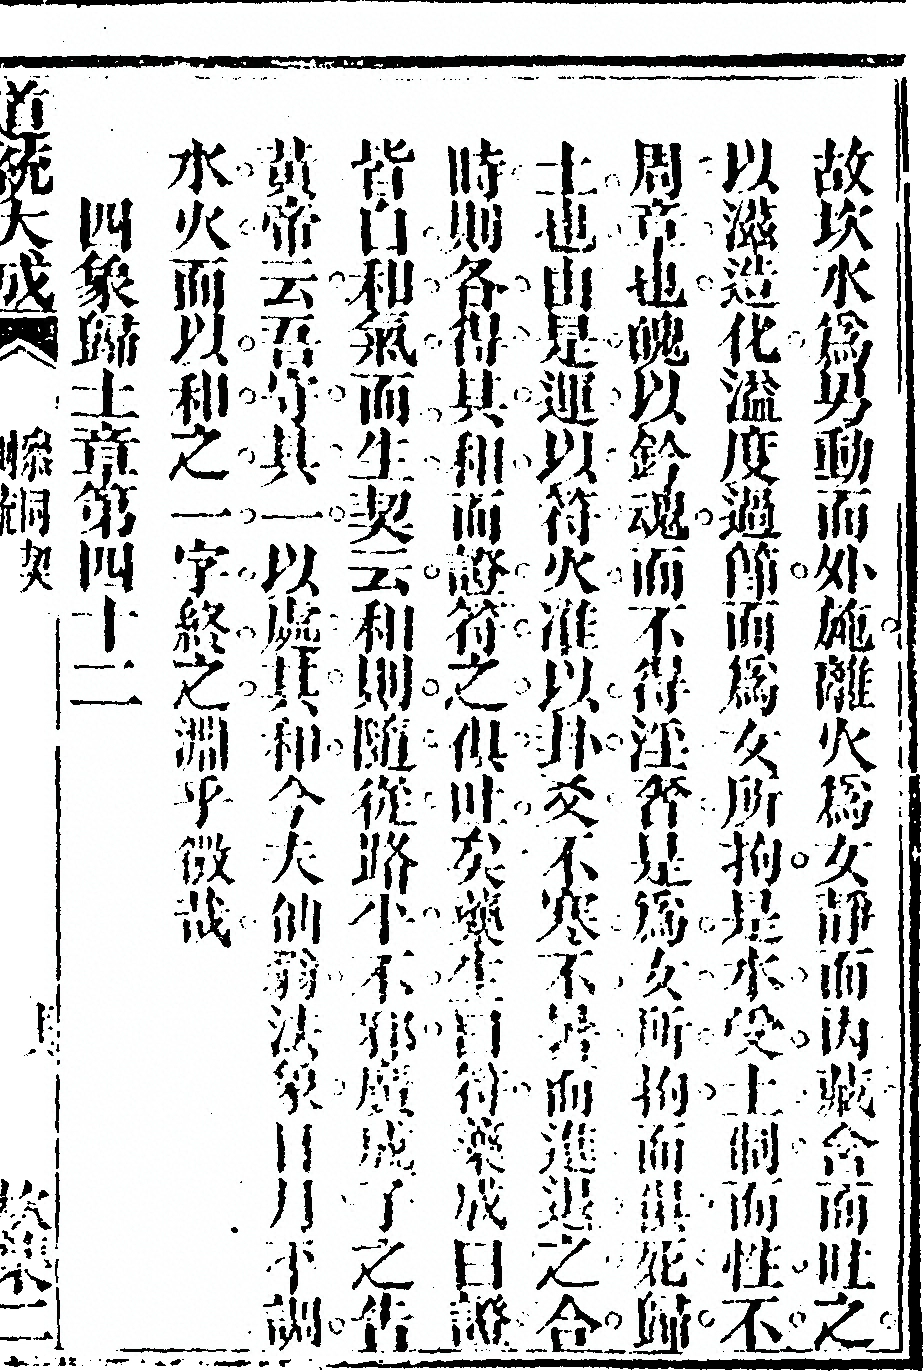 故坎水為男動而外施離火為女靜而內藏含而吐之
以滋造化溢度過節而為女所拘是水受土制而性不
周章也魄以鈐魂而不得淫奢是為女所拘而俱死歸
土也由是運以符火准以卦爻不寒不暑而進退之合
時則各得其和而證符之俱吐矣藥生曰符藥成曰證
皆自和氣而生契云和則隨從路平不邪魔成子之告
黃帝云吾守其一以處其和今夫仙翁法象日月平調
水火而以和之一字終之淵乎微哉
四象歸土章第四十二
道統大成